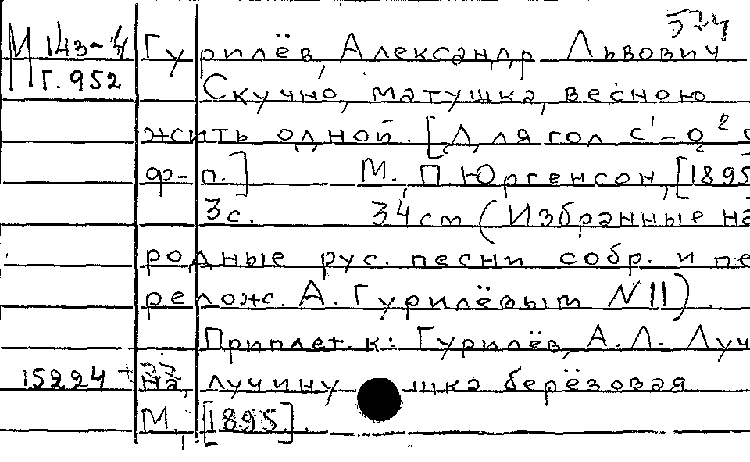 574
М 143-4 Гурилёв, Александр Львович
Г. 952
Скучно, матушка, весною
жить одной. [Для гол c'-g² с
ф-п.] М., П. Юргенсон, [1895
3с. 34 см (Избранные на
родные рус. песни собр. и пе
релож. А. Гурилёвым N 11).
Приплет. к: Гурилёв, А. Л. Луч
15224 на, лучинушка берёзовая
М., [1895].